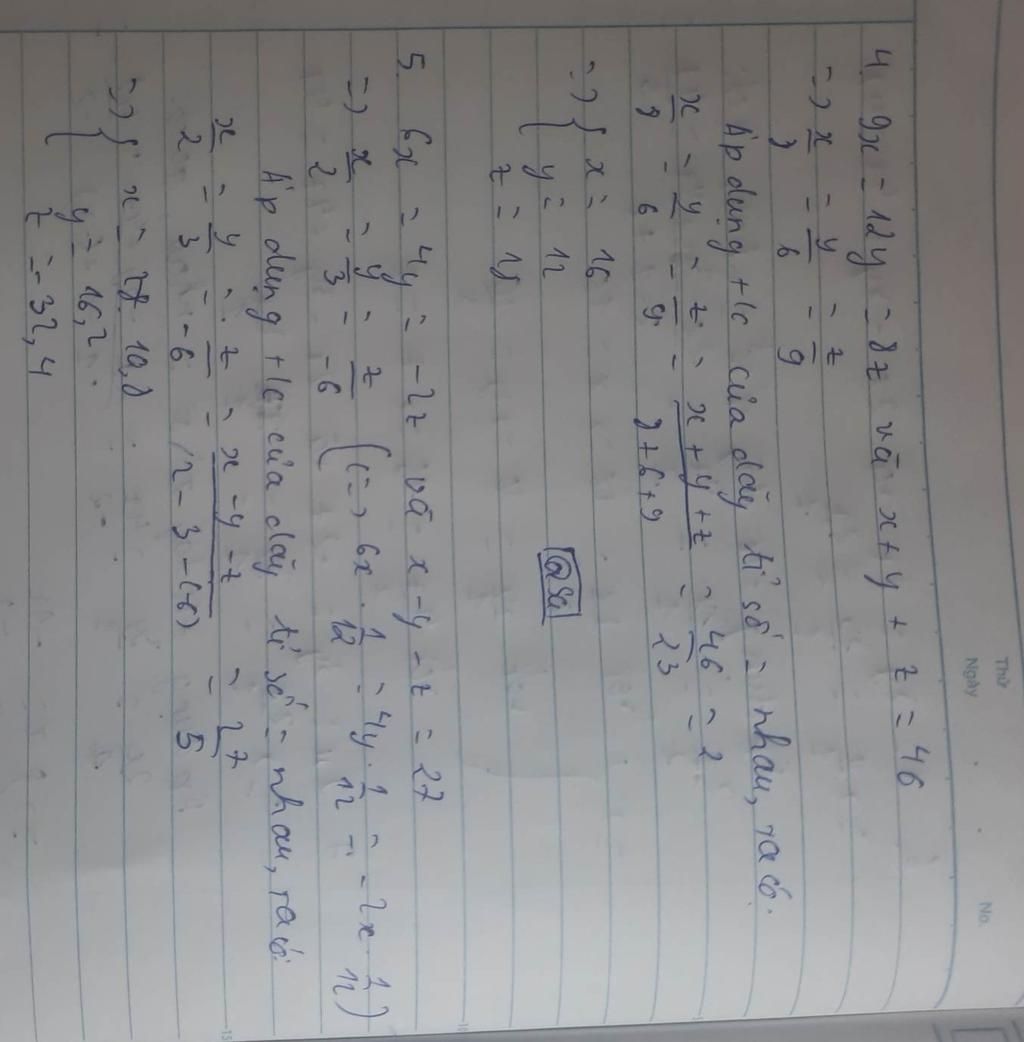 Thứ
Ngày
No.
4. 9x = 12y = 8z và x + y + z = 46
=> x/8 = y/6 = z/9
Áp dụng t/c của dãy tỉ số = nhau, ta có.
x/8 = y/6 = z/9 = x + y + z/8 + 6 + 9 = 46/23 = 2
=> { x = 16
y = 12
z = 18
5. 6x = 4y = -2z và x - y - z = 27
=> x/2 = y/3 = z/-6 (=> 6x . 1/12 = 4y . 1/12 = -2x . 1/12)
Áp dụng t/c của dãy tỉ số = nhau, ta có:
x/2 = y/3 = z/-6 = x - y - z/2 - 3 - (-6) = 27/5
=> { x = 10,8
y = 16,2
z = -32,4
10
15